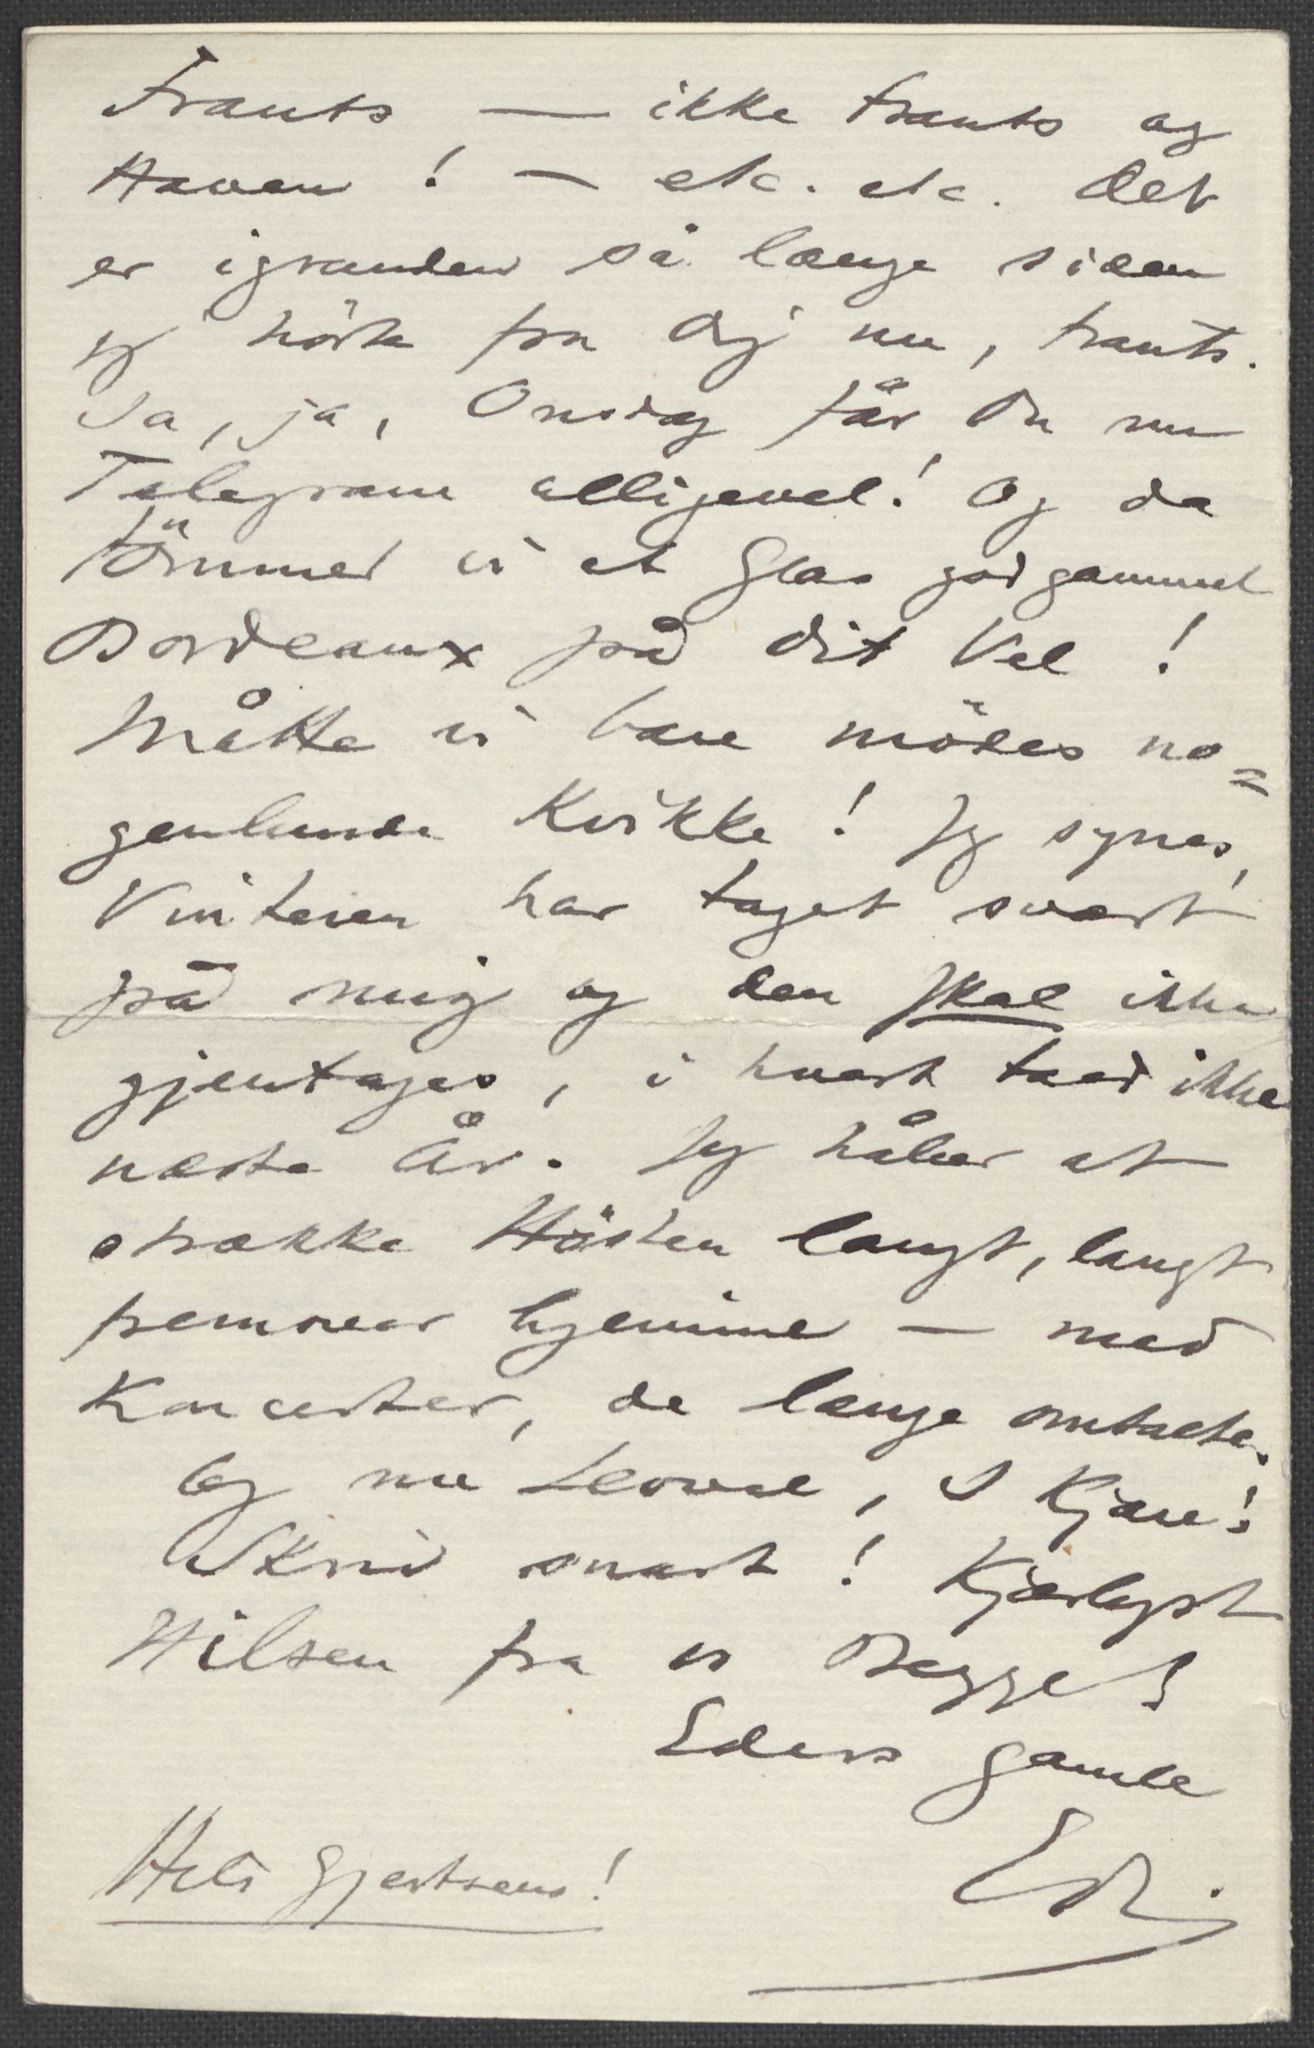 Frants — ikke Frants og
Haven! — etc. etc. Det
er igrunden så længe siden
jeg hörte fra Dig nu, Frants.
Ja, ja, Onsdag får Du nu
Telegram alligevel! Og da
tömmer vi et Glas god gammel
Bordeaux på dit Vel!
Måtte vi bare mödes no=
genlunde kvikke! Jeg synes,
Vinteren har taget svært
på mig og den skal ikke
gjentages, i hvert fald ikke
næste År. Jeg håber at
strække Hösten langt, langt
fremover hjemme — med
Koncerter, de længe omtalte.
Og nu Levvel, I Kjære!
Skriv snart! Kjærligst
Hilsen fra os Begge!
Eders gamle
Edv.
Hils Gjertsens!